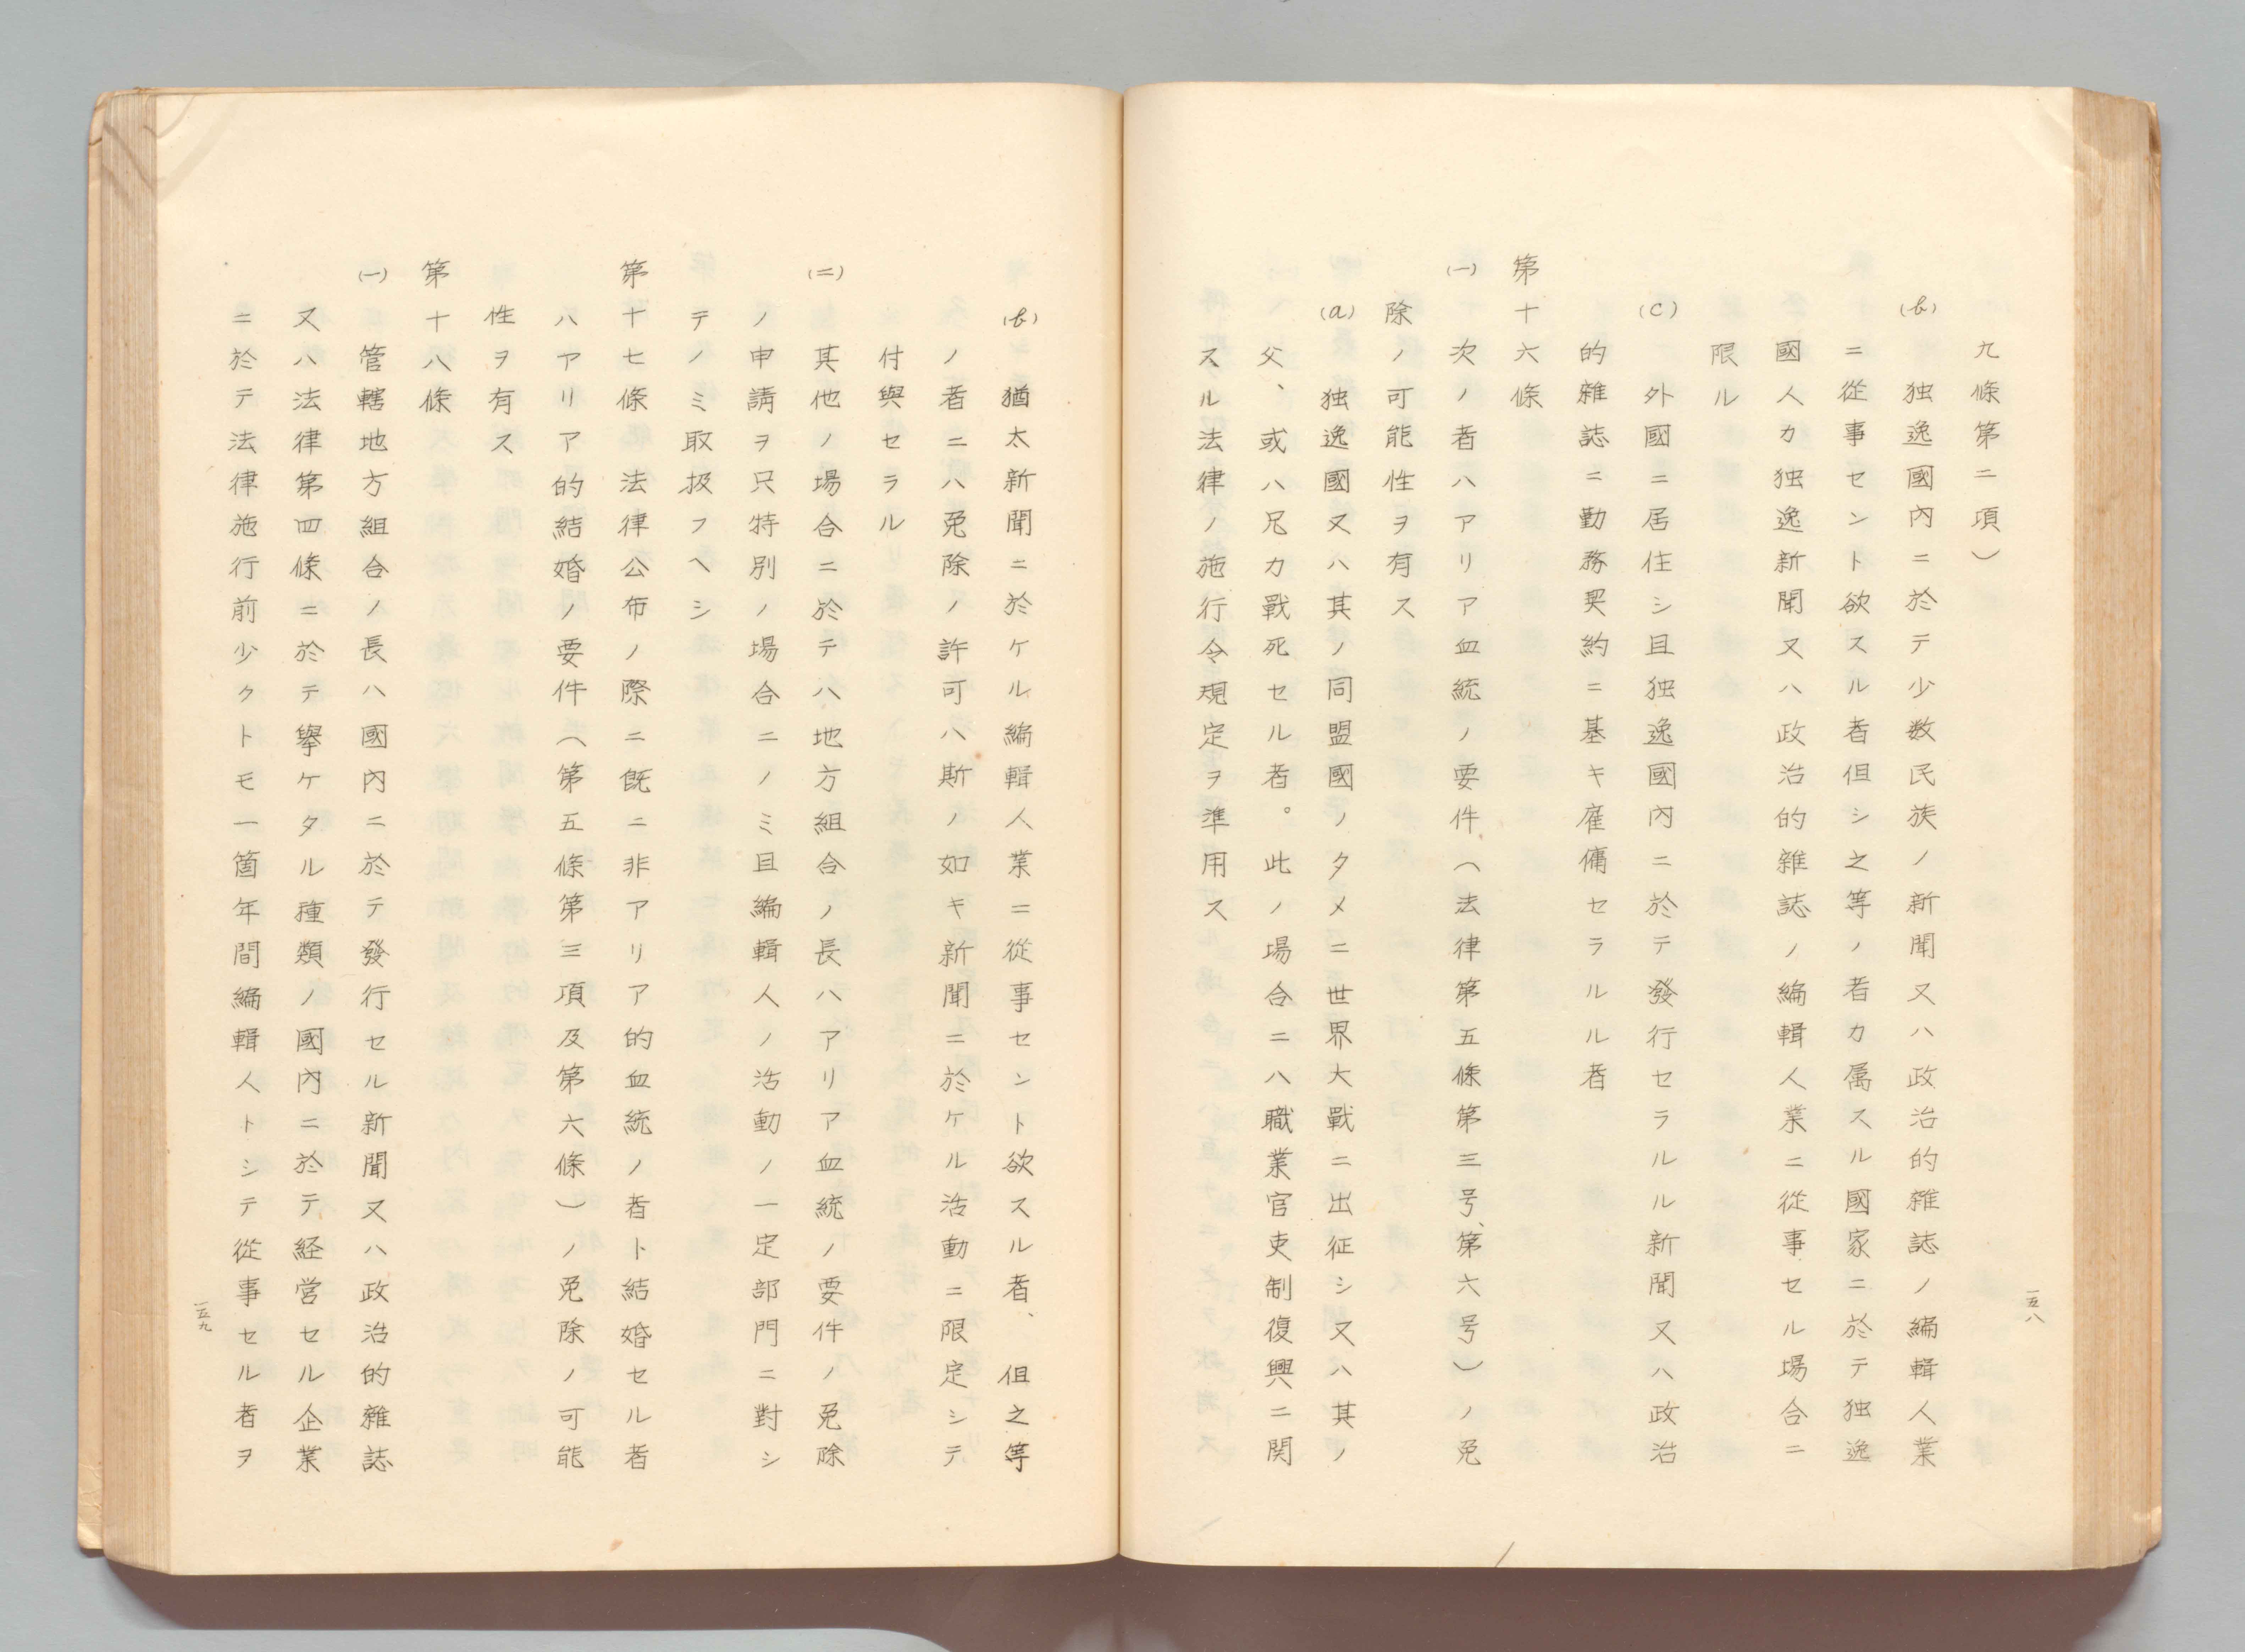 一五八
九條第二項）
(b) 独逸國內ニ於テ少数民族ノ新聞又ハ政治的雜誌ノ編輯人業
ニ從事セント欲スル者但シ之等ノ者カ属スル國家ニ於テ独逸
國人カ独逸新聞又ハ政治的雜誌ノ編輯人業ニ從事セル場合ニ
限ル
(C) 外國ニ居住シ且独逸國內ニ於テ發行セラルル新聞又ハ政治
的雜誌ニ勤務契約ニ基キ雇傭セラルル者
第十六條
(一) 次ノ者ハアリア血統ノ要件（法律第五條第三号、第六号）ノ免
除ノ可能性ヲ有ス
(a) 独逸國又ハ其ノ同盟國ノタメニ世界大戰ニ出征シ又ハ其ノ
父、或ハ兄カ戰死セル者。此ノ場合ニハ職業官吏制復興ニ関
スル法律ノ施行令規定ヲ準用ス
(b) 猶太新聞ニ於ケル編輯人業ニ從事セント欲スル者、但之等
ノ者ニハ免除ノ許可ハ斯ノ如キ新聞ニ於ケル活動ニ限定シテ
付與セラル
(二) 其他ノ場合ニ於テハ地方組合ノ長ハアリア血統ノ要件ノ免除
ノ申請ヲ只特別ノ場合ニノミ且編輯人ノ活動ノ一定部門ニ對シ
テノミ取扱フヘシ
第十七條 法律公布ノ際ニ既ニ非アリア的血統ノ者ト結婚セル者
ハアリア的結婚ノ要件（第五條第三項及第六條）ノ免除ノ可能
性ヲ有ス
第十八條
(一) 管轄地方組合ノ長ハ國內ニ於テ發行セル新聞又ハ政治的雜誌
又ハ法律第四條ニ於テ擧ケタル種類ノ國內ニ於テ経営セル企業
ニ於テ法律施行前少クトモ一箇年間編輯人トシテ從事セル者ヲ
一五九